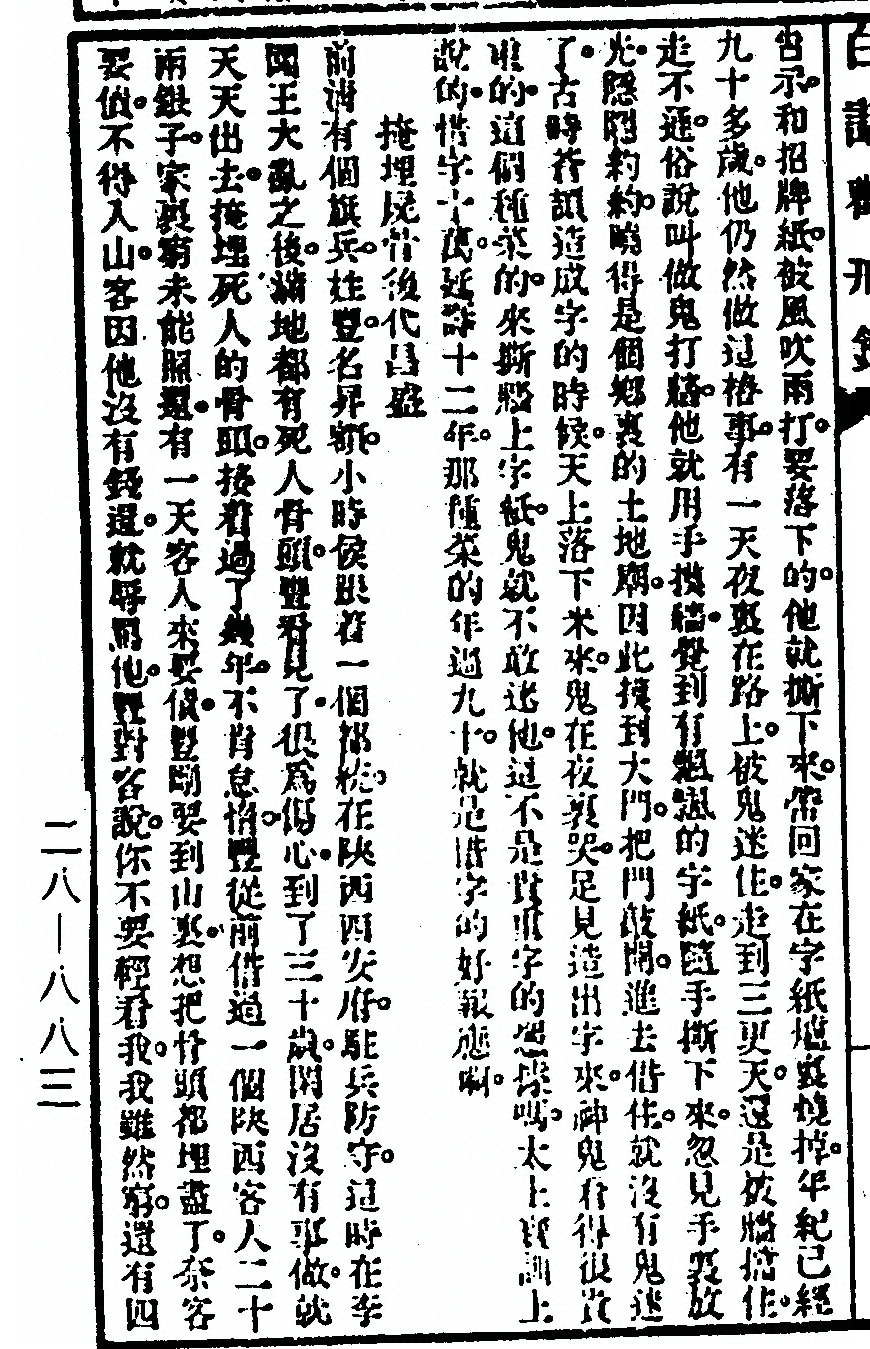 告示。和招牌紙。被風吹雨打。要落下的。他就撕下來。帶回家在字紙爐裏燒掉。年紀已經
九十多歲。他仍然做這樁事。有一天夜裏在路上。被鬼迷住。走到三更天。還是被牆擋住。
走不遞。俗說叫做鬼打牆。他就用手摸牆。覺到有飄飄的字紙。隨手撕下來。忽見手裏放
光。隱隱約約。曉得是個鄉裏的土地廟。因此摸到大門。把門敲開。進去借住。就沒有鬼迷
了。古時蒼頡造成字的時候。天上落下米來。鬼在夜裏哭。足見造出字來。神鬼看得很貴
重的。這個種菜的。來撕牆上字紙。鬼就不敢迷他。這不是貴重字的憑據嗎。太上寶訓上
說的。惜字十萬。延壽十二年。那種菜的年過九十。就是惜字的好報應啊。
掩埋屍骨後代昌盛
前清有個旗兵。姓豐。名昇額。小時候跟着一個都統。在陝西西安府。駐兵防守。這時在李
闖王大亂之後。滿地都有死人骨頭。豐看見了。很爲傷心。到了三十歲。閑居沒有事做。就
天天出去。掩埋死人的骨頭。接着過了幾年。不肯怠惰。豐從前借過一個陝西客人二十
兩銀子。家裏窮未能照還。有一天客人來要債。豐剛要到山裏。想把骨頭都埋盡了。奈客
要債。不得入山。客因他沒有錢還。就辱罵他。豐對客說。你不要輕看我。我雖然窮。還有四
二八—八八三